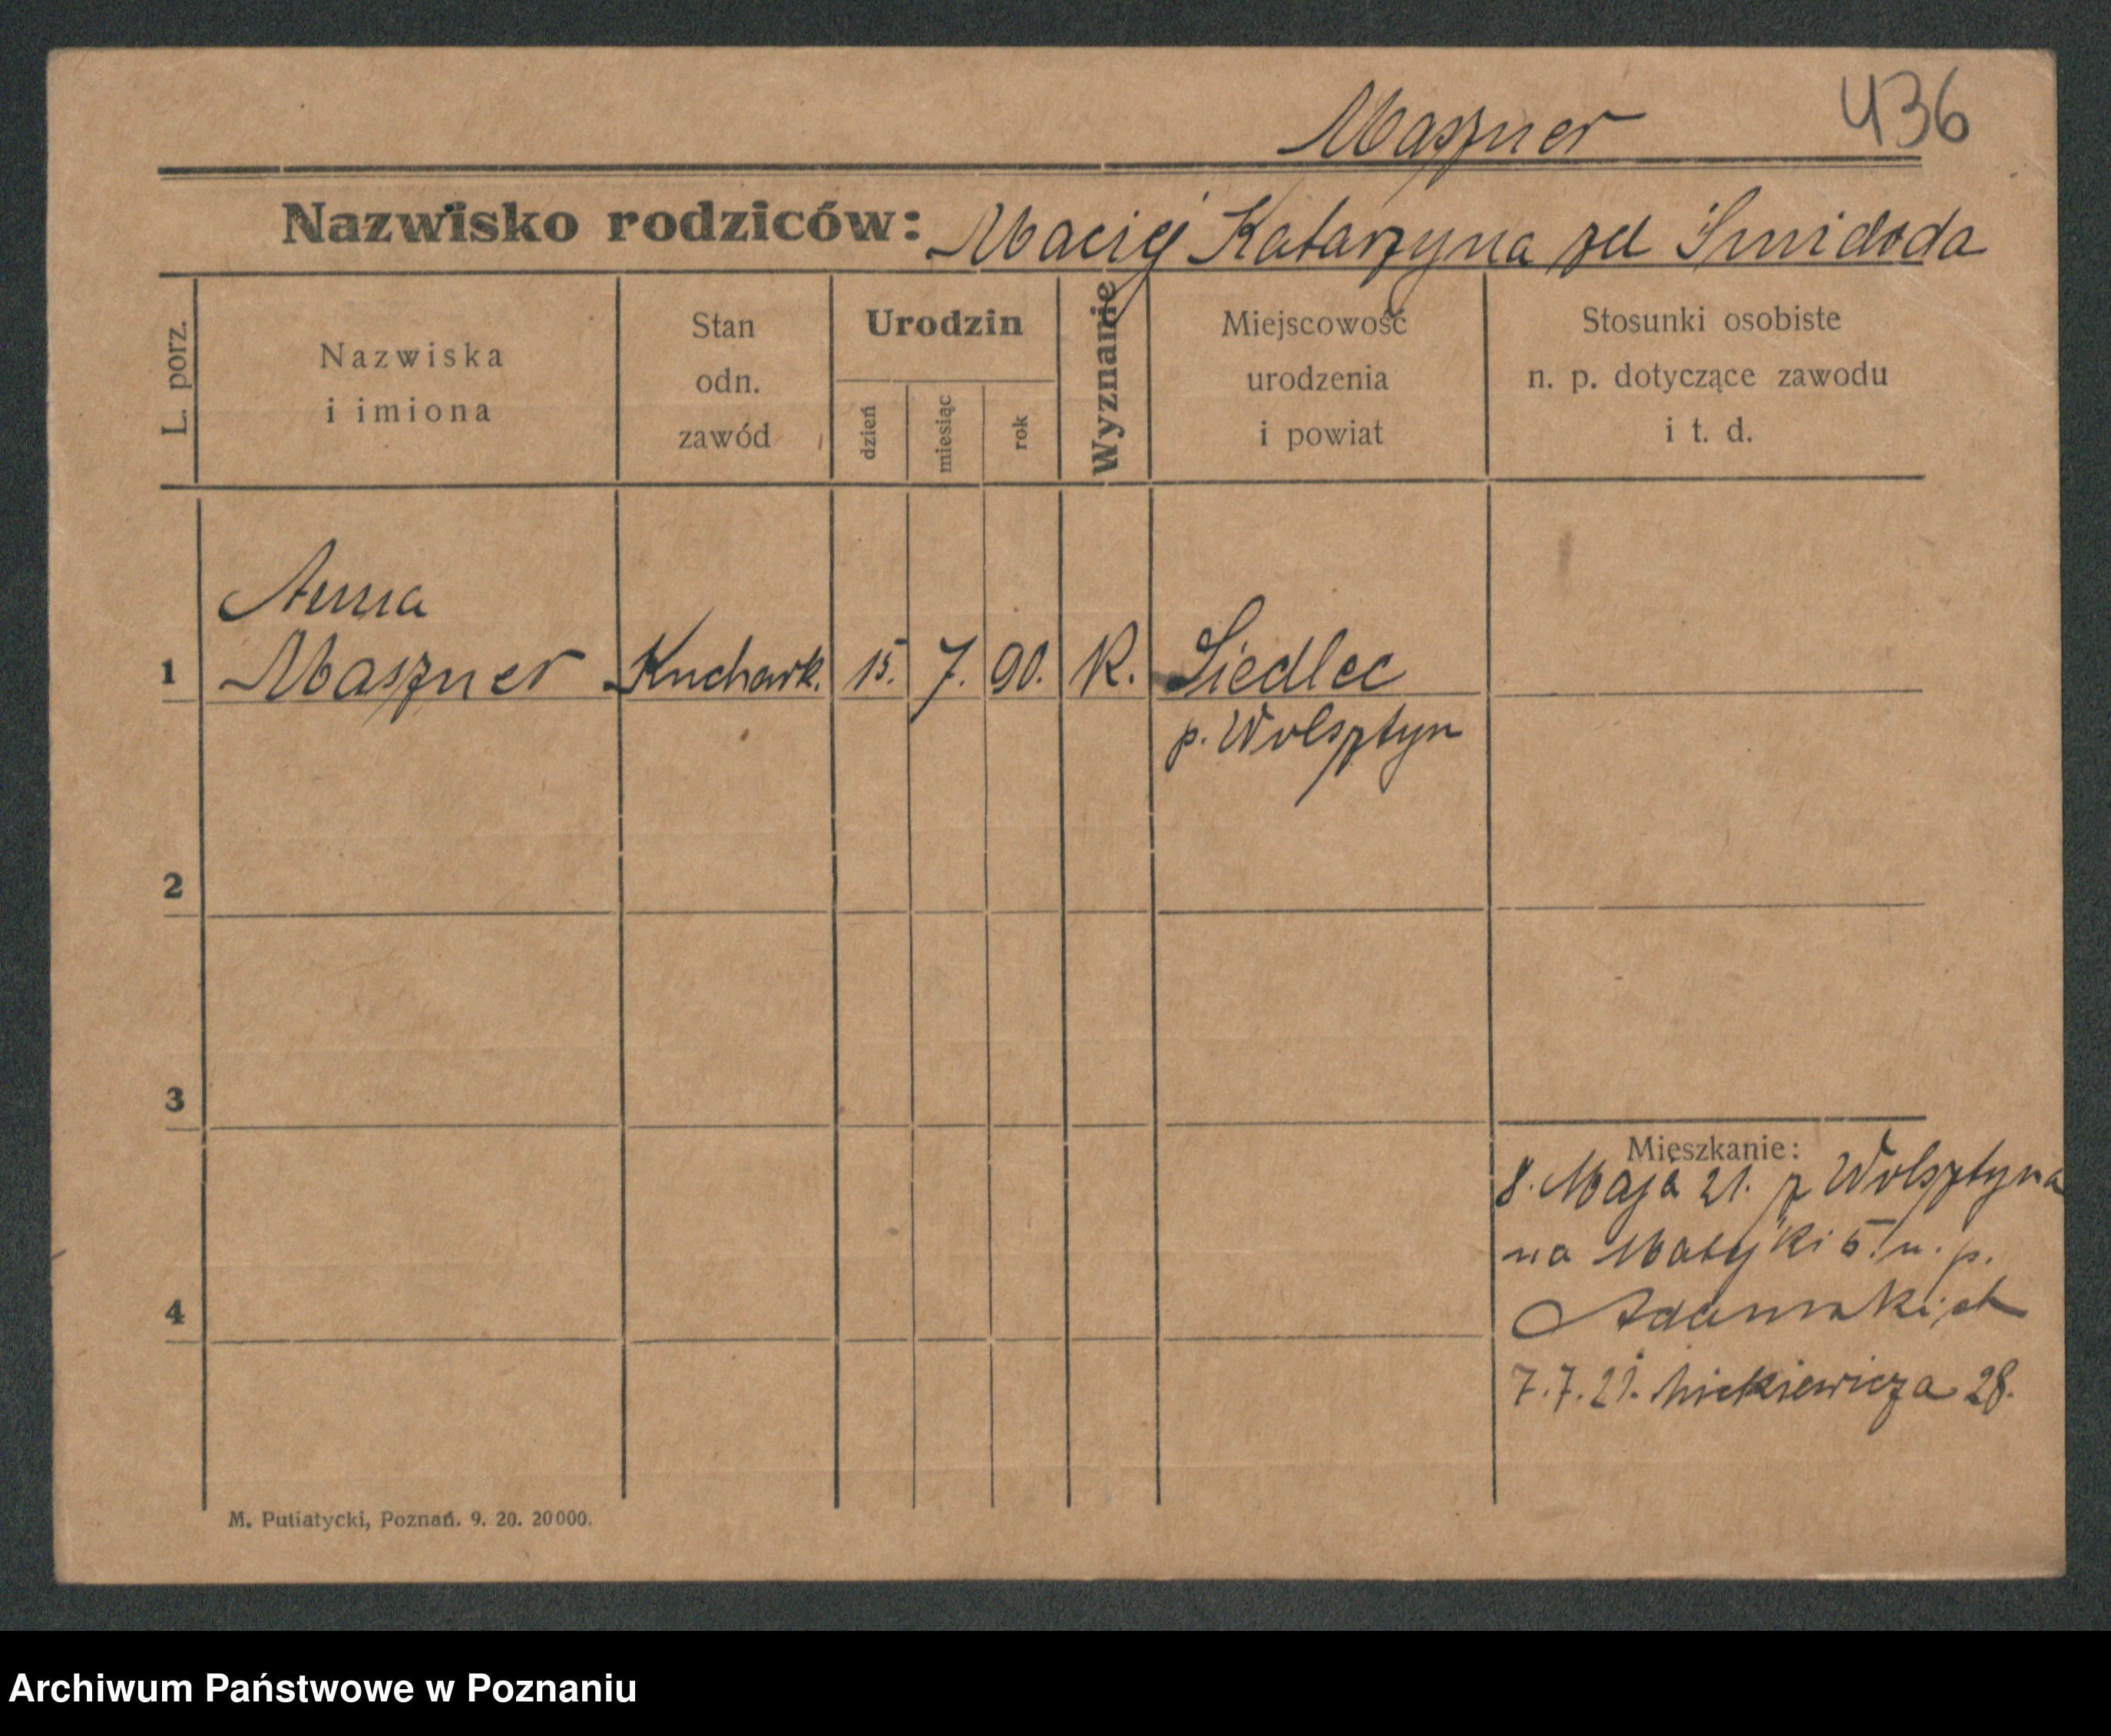 Maszner 436
Nazwisko rodziców: Maciej Katarzyna zd Smidoda
L. porz.
Nazwiska
i imiona
Stan
odn.
zawód
Urodzin
dzień
miesiąc
rok
Wyznanie
Miejscowość
urodzenia
i powiat
Stosunki osobiste
n. p. dotyczące zawodu
i t. d.
Anna
1 Maszner Kuchark. 15. 7. 90. K. Siedlec
p. Wolsztyn
2
3
Mieszkanie:
8. Maja 21. z Wolsztyna
na Matejki 5. u. p.
4
7.7.21. Mickiewicza 28.
M. Putiatycki, Poznań. 9. 20. 20000.
Archiwum Państwowe w Poznaniu